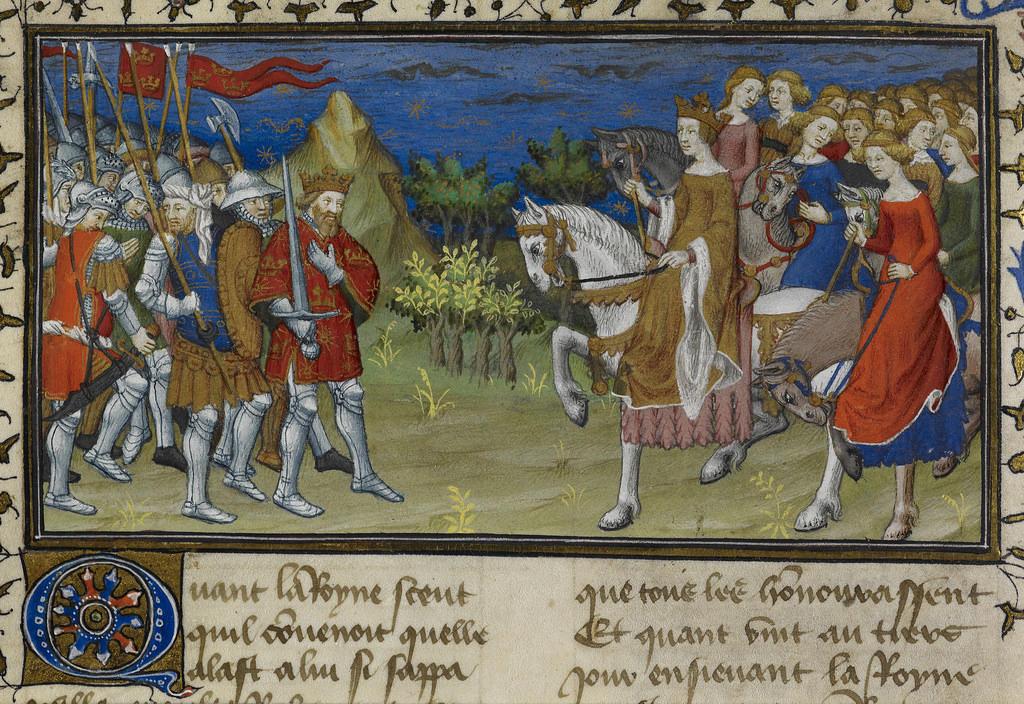 Quant la Royne sceut
quil cōuenoit quelle
alast a lui si sappa
que tous les hōnourassent
Et quant vint au tiers
Jour ensieuant la Royne